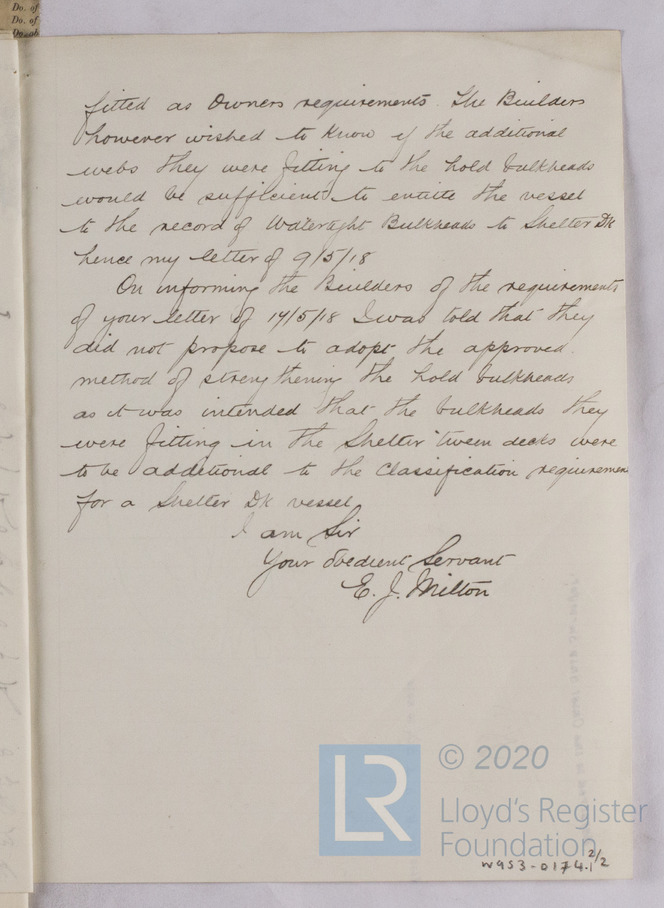 Do. of
Do. of
Do. of
fitted as Owners requirements. The Builders
however wished to know if the additional
webs they were fitting to the hold bulkheads
would be sufficient to entitle the vessel
to the record of Watertight Bulkheads to Shelter Dk
hence my letter of 9/5/18
On informing the Builders of the requirements
of your letter of 14/5/18 I was told that they
did not propose to adopt the approved
method of strengthening the hold bulkheads
as it was intended that the bulkheads they
were fitting in the Shelter 'tween decks were
to be additional to the Classification requirements
for a Shelter Dk vessel
I am Sir
Your obedient Servant
E. J. Milton
LR
© 2020
Lloyd's Register
Foundation
W953-0174.1 2/2